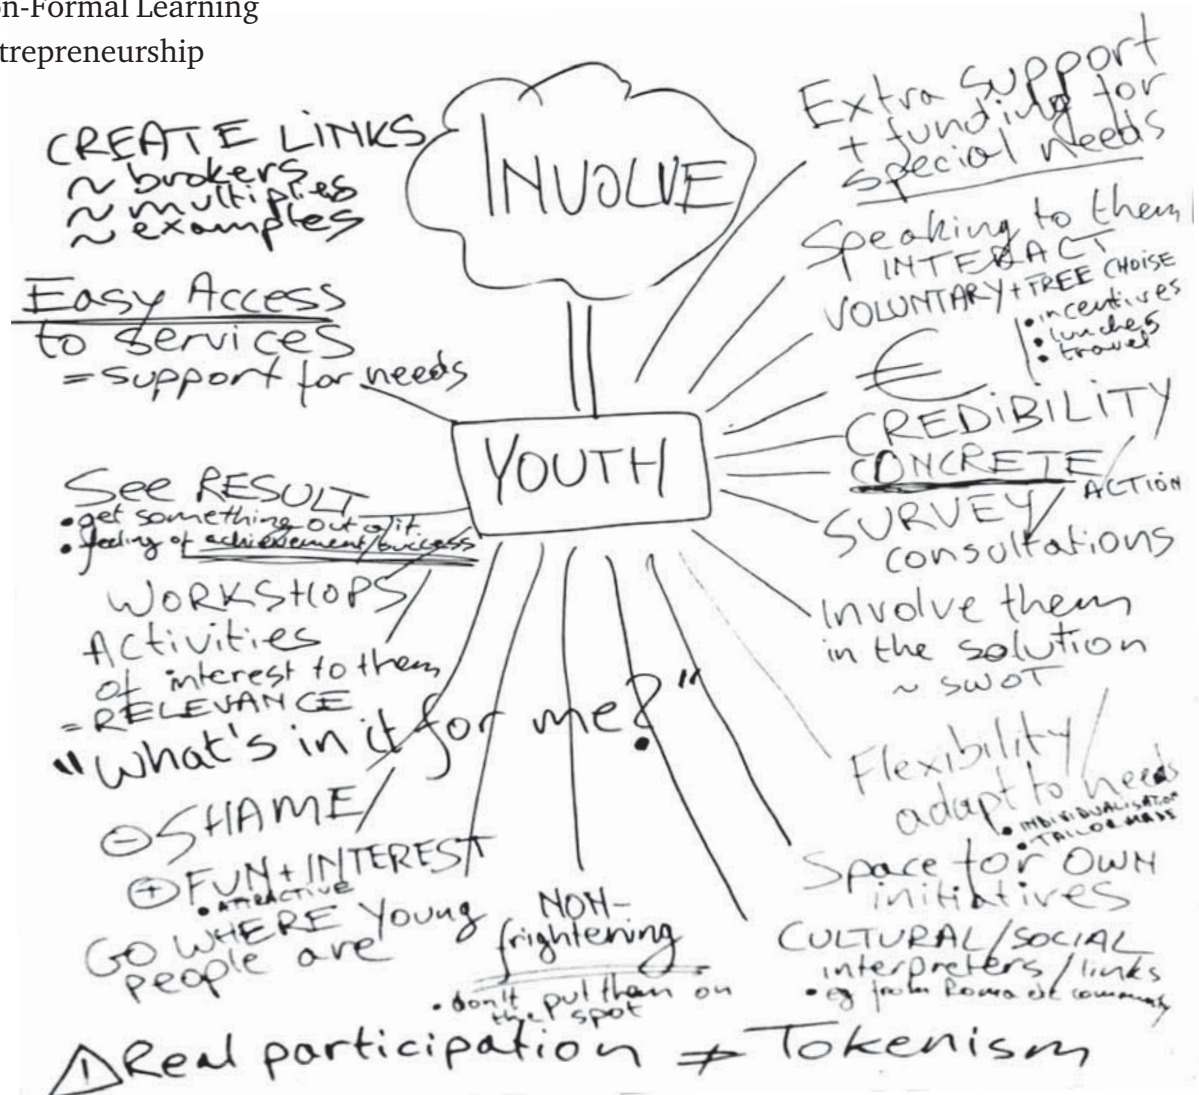 on-Formal Learning
trepreneurship
INVOLVE
YOUTH
CREATE LINKS
~ brokers
~ multiplies
~ examples
Easy Access
to services
= support for needs
See RESULT
• get something out of it
• feeling of achievement/success
WORKSHOPS
Activities
of interest to them
= RELEVANCE
"What's in it for me?"
⊖ SHAME
⊕ FUN + INTEREST
• ATTRACTIVE
GO WHERE Young
people are
NON-
frightening
• don't put them on
the spot
Extra support
+ funding for
special needs
Speaking to them
INTERACT
VOLUNTARY + FREE CHOISE
• incentives
• lunches
• travel
€
CREDIBILITY
CONCRETE
ACTION
SURVEY/
consultations
Involve them
in the solution
~ SWOT
Flexibility/
adapt to needs
• INDIVIDUALISATION
• TAILOR MADE
Space for OWN
initiatives
CULTURAL/SOCIAL
interpreters/links
• eg from Roma etc community
⚠ Real participation ≠ Tokenism